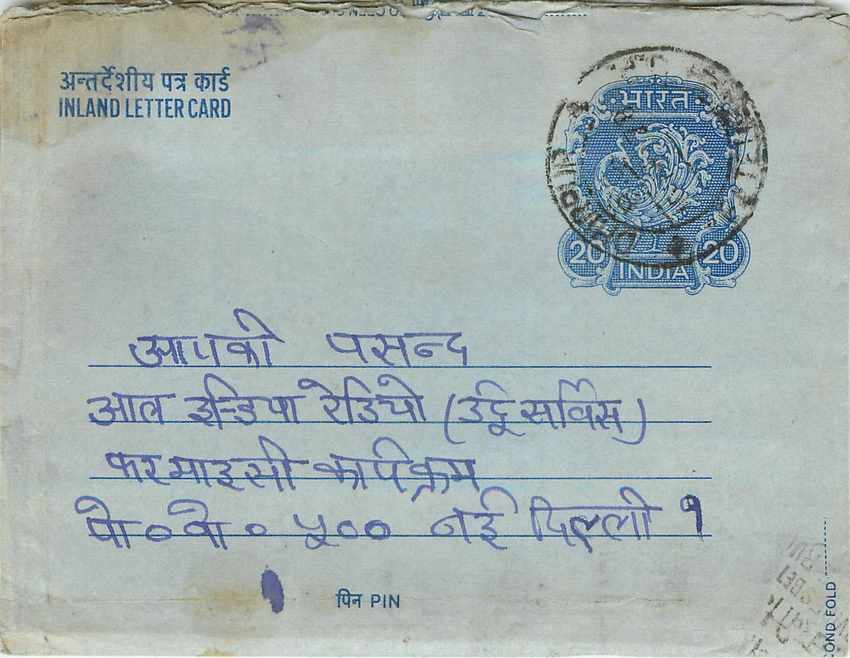 अन्तर्देशीय पत्र कार्ड
INLAND LETTER CARD
भारत
20 20
INDIA
आपकी पसन्द
आल इन्डिया रेडियो (उर्दू सर्विस)
फरमाइसी कार्यक्रम
पो० वो० ५०० नई दिल्ली १
पिन PIN
OND FOLD